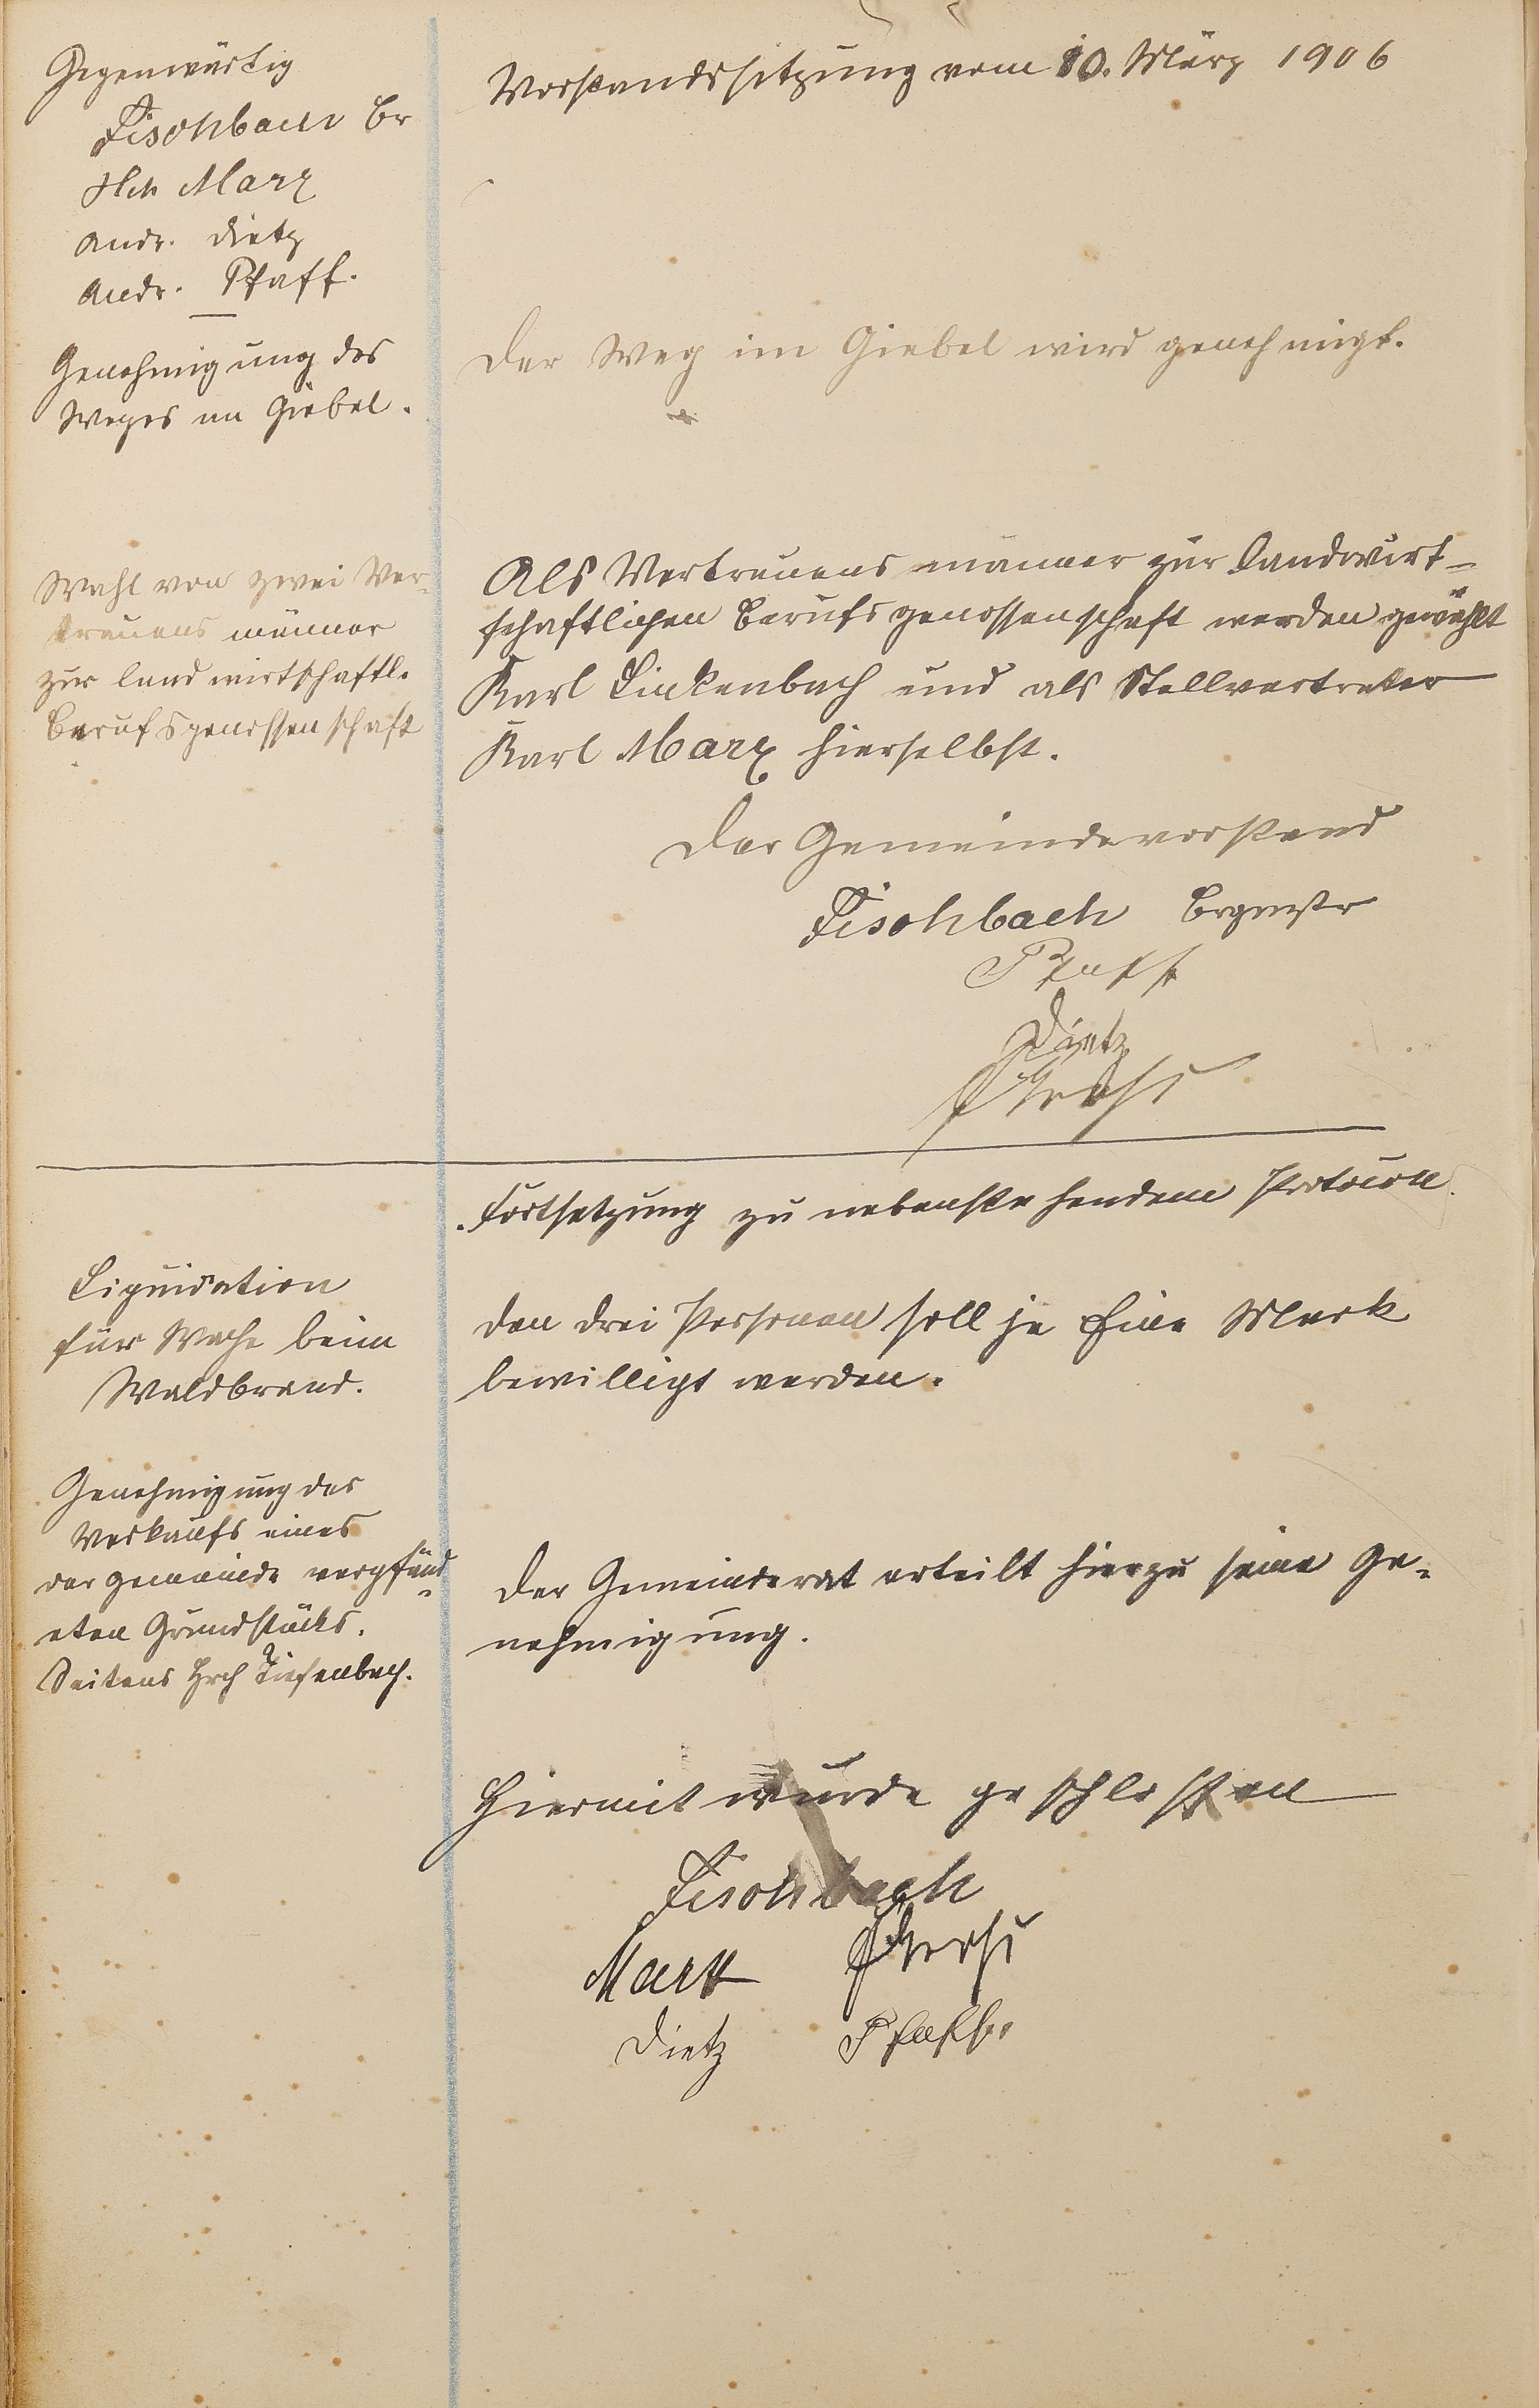 Gegenwärtig
Fischbach Br
Hch Marx
Andr. Dietz
Andr. Pfaff.
Vorstandssitzung vom 10. März 1906
Genehmigung des
Weges im Giebel.
Der Weg im Giebel wird genehmigt.
Wahl von zwei Ver-
trauens männer
zur landwirtschaftl.
Berufsgenossenschaft
Als Vertrauens männer zur Landwirt-
schaftlichen Berufsgenossenschaft werden gewählt
Karl Linkenbach und als Stellvertreter
Karl Marx hierselbst.
Der Gemeindevorstand
Fischbach Brgmstr
Pfaff
Dietz
Fortsetzung zu nebenstehendem Protocoll.
Liquidation
für Wache beim
Waldbrand.
Den drei Personen soll je Eine Mark
bewilligt werden.
Genehmigung des
Verkaufs eines
der Gemeinde verpfänd-
eten Grundstücks.
Seitens Hrch Tiefenbach.
Der Gemeinderat erteilt hierzu seine Ge-
nehmigung.
Hiermit wurde geschlossen
Fischbach
Marx
Dietz Pfaff